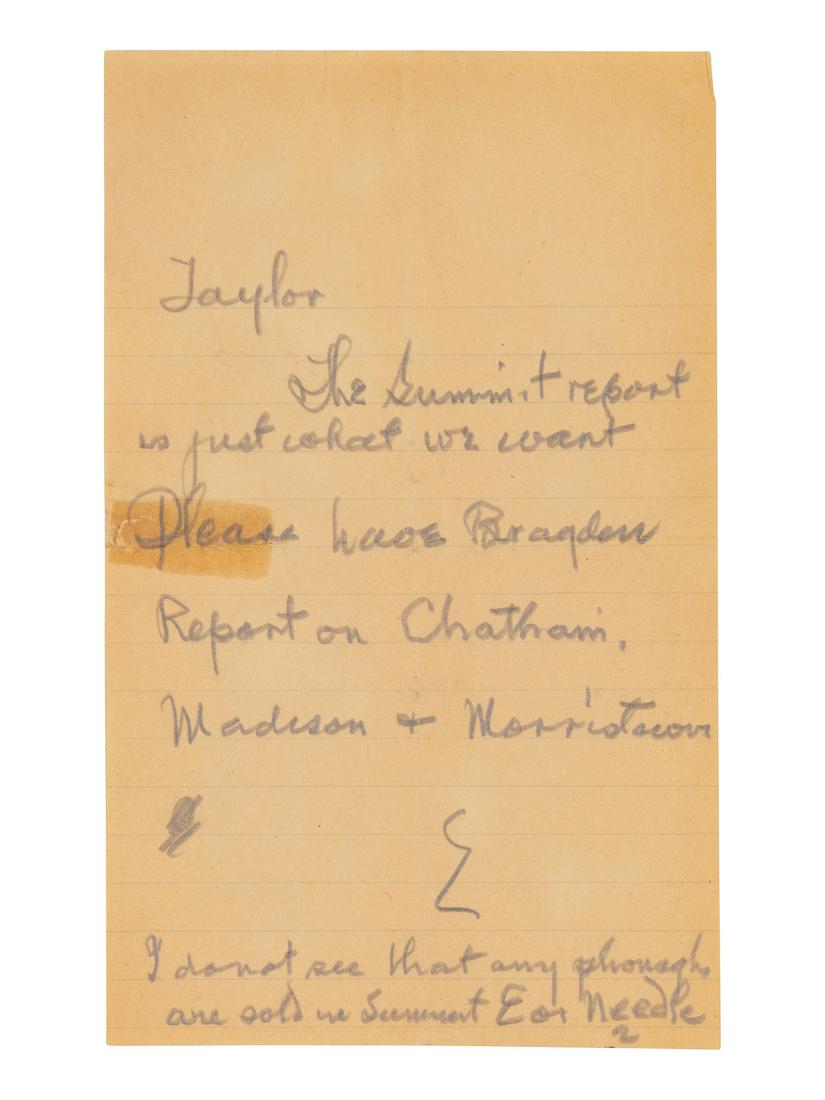 Taylor
The Summit report
is just what we want
Please have Bragden
Report on Chatham,
Madison + Morristown
E
I do not see that any phonogh,
are sold in Summit E or Needle